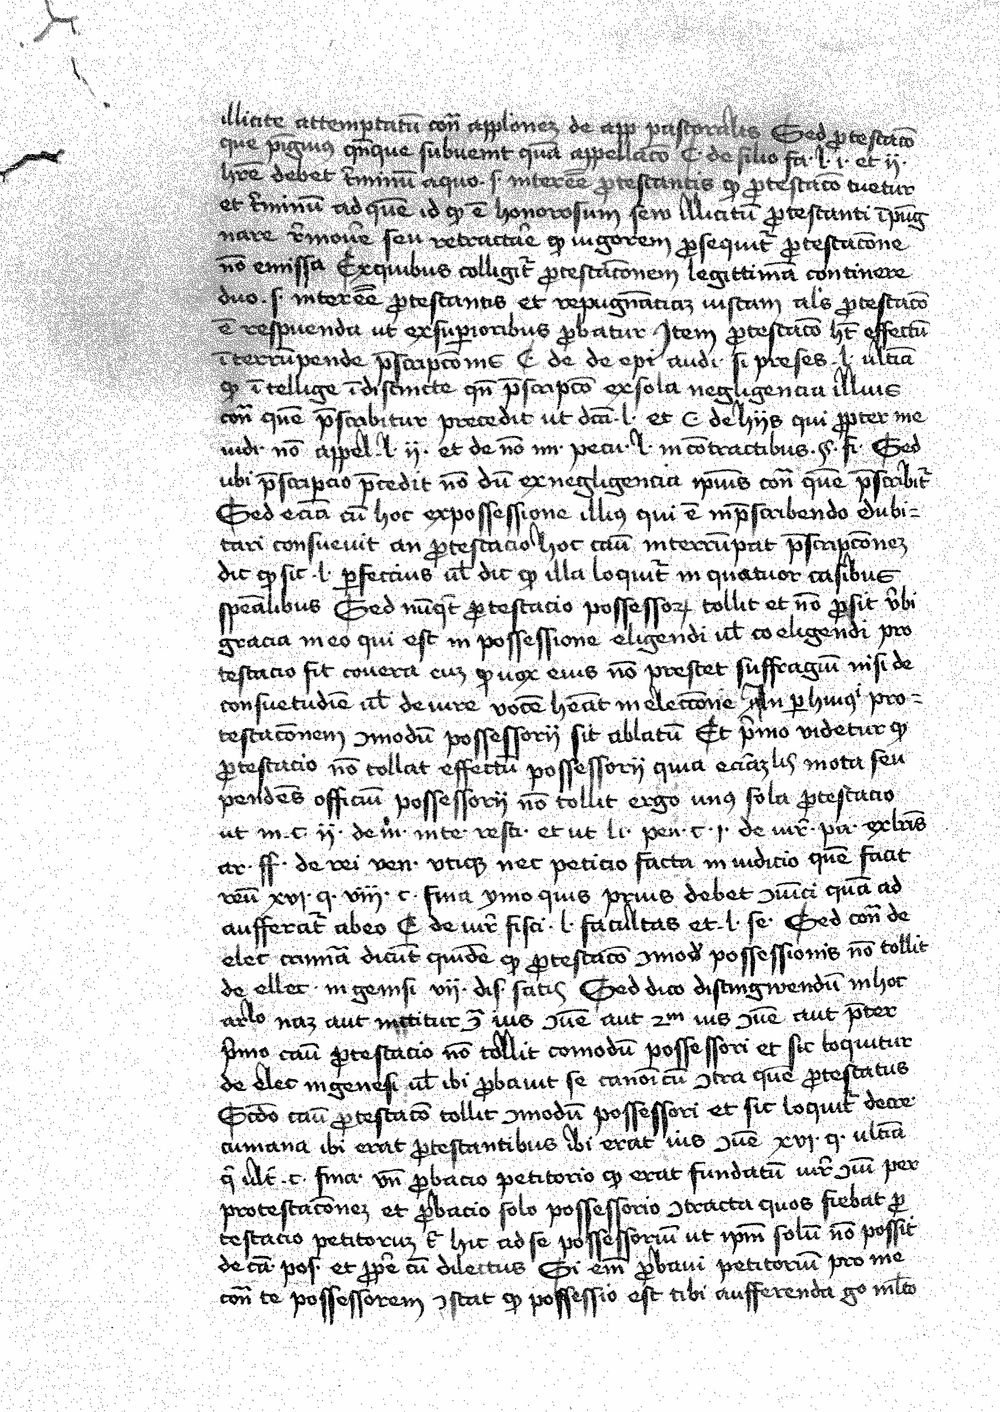 illicite attemptatū con̄ applōnez de app pastoralis Sed ꝓtestacō
que pigm̄ꝰ qn̄que subuenit quā appellacō C. de filio fa. l. i. et ii.
hr̄e debet t̄minū aquo. s. interēe ꝓtestantis ꝙ ꝓtestacō tuetur
et t̄minū ad quē id ꝙ ē honorosum seu illicitū ꝓtestanti īpūg
nare r̄mouēe seu retractāe ꝙ uigorem ꝓsequit̄ ꝓtestacōne
nō emissa Exquibus colligit̄ ꝓtestacōnem legittimā continere
duo. s. interēe ꝓtestantis et repugnāticaz iustam als̄ ꝓtestacō
ē respuenda ut exsuꝑioribus ꝓbatur Item ꝓtestacō ht̄ effectū
īterrūpende p̄scripcōnis C de de epi audi. si preses. l. ultīa
ꝙ ītellige īdistincte qn̄ p̄scripcō exsola negligencia illius
con̄ quē p̄scribitur precedit ut dc̄a. l. et C de hiis qui ꝓpter me
iudi. nō appel. l. ii. et de nō nu pecu. l. in cōtractibus. §. fi. Sed
ubi p̄scripcio p̄cedit nō dū exnegligencia ipīus con̄ quē p̄scribit̄
Sed ecīa cū hoc expossessione illiꝰ qui ē inp̄scribendo dubi=
tari consueuit an ꝓtestacio hoc cāu interrūpat p̄scripcōnez
dic ꝙ sic. l. ꝑfectius ul̄ dic ꝙ illa loquit̄ in quatuor casibus
speālibus Sed nūqt̄ ꝓtestacio possessoꝝ tollit et nō ꝓsit v̄bi
gracia in eo qui est in possessione eligendi ul̄ coeligendi pro
testacio fit couera cuz ꝙ uox eius nō prestet suffragiū nisi de
consuetudīe ul̄ de iure vocē hēat in eleccōne An ꝑ huiꝰi pro=
testacōnem ↄmodū possessorii sit ablatū Et p̄imo videtur ꝙ
ꝓtestacio nō tollat effectū possessorii quia ecīaz lis̄ mota seu
pendēs officiū possessorii nō tollit ergo unꝰ sola ꝓtestacio
ut in. c. ii. de in. inte. resti. et ut li. pen. c. i. de iur̄. pa. exlr̄is
ar. ff. de rei ven. utiqꝫ nec peticio facta in iudicio quē facit
reū xvi. q. viii. c. fina ymo quis prius debet ↄuīci quā ad
aufferat̄ abeo C de iur̄ fisci. l. facultas et. l. se. Sed con̄ de
elec cumnā dicūt quidē ꝙ ꝓtestacō ↄmodȳ possessionis nō tollit
de ellec. in genesi vii. dis. satis̄ Sed dico distingwendū in hoc
ar͏lo naz aut inititur ↄ̄ ius ↄuē aut 2m ius ↄuē aut p̄ter
p̄imo cāu ꝓtestacio nō tollit comodū possessori et sic loquitur
de elec ingenesi ul̄ ibi ꝓbauit se canoīcū ↄtra quē ꝓtestatus
Sc̄do cāu ꝓtestacō tollit ↄmodū possessori et sic loquit̄ decre
cumana ibi erat ꝓtestantibus ibi erat ius ↄuē xvi. q. ultīa
q̄ ult̄. c. fina. vn̄ ꝓbacio petitorio ꝙ erat fundatū iur̄ ↄuī per
protestacōnez et ꝓbacio solo possessorio ↄtracta quos fiebat ꝓ
testacio petitoruz hic ad se possessoriū ut ipm̄ solū nō possit
de cā. pos. et ꝓpr̄e cū dilectus Si em̄ ꝓbaui petitoriū pro me
con̄ te possessorem ↄstat ꝙ possessio est tibi aufferenda go ml̄to